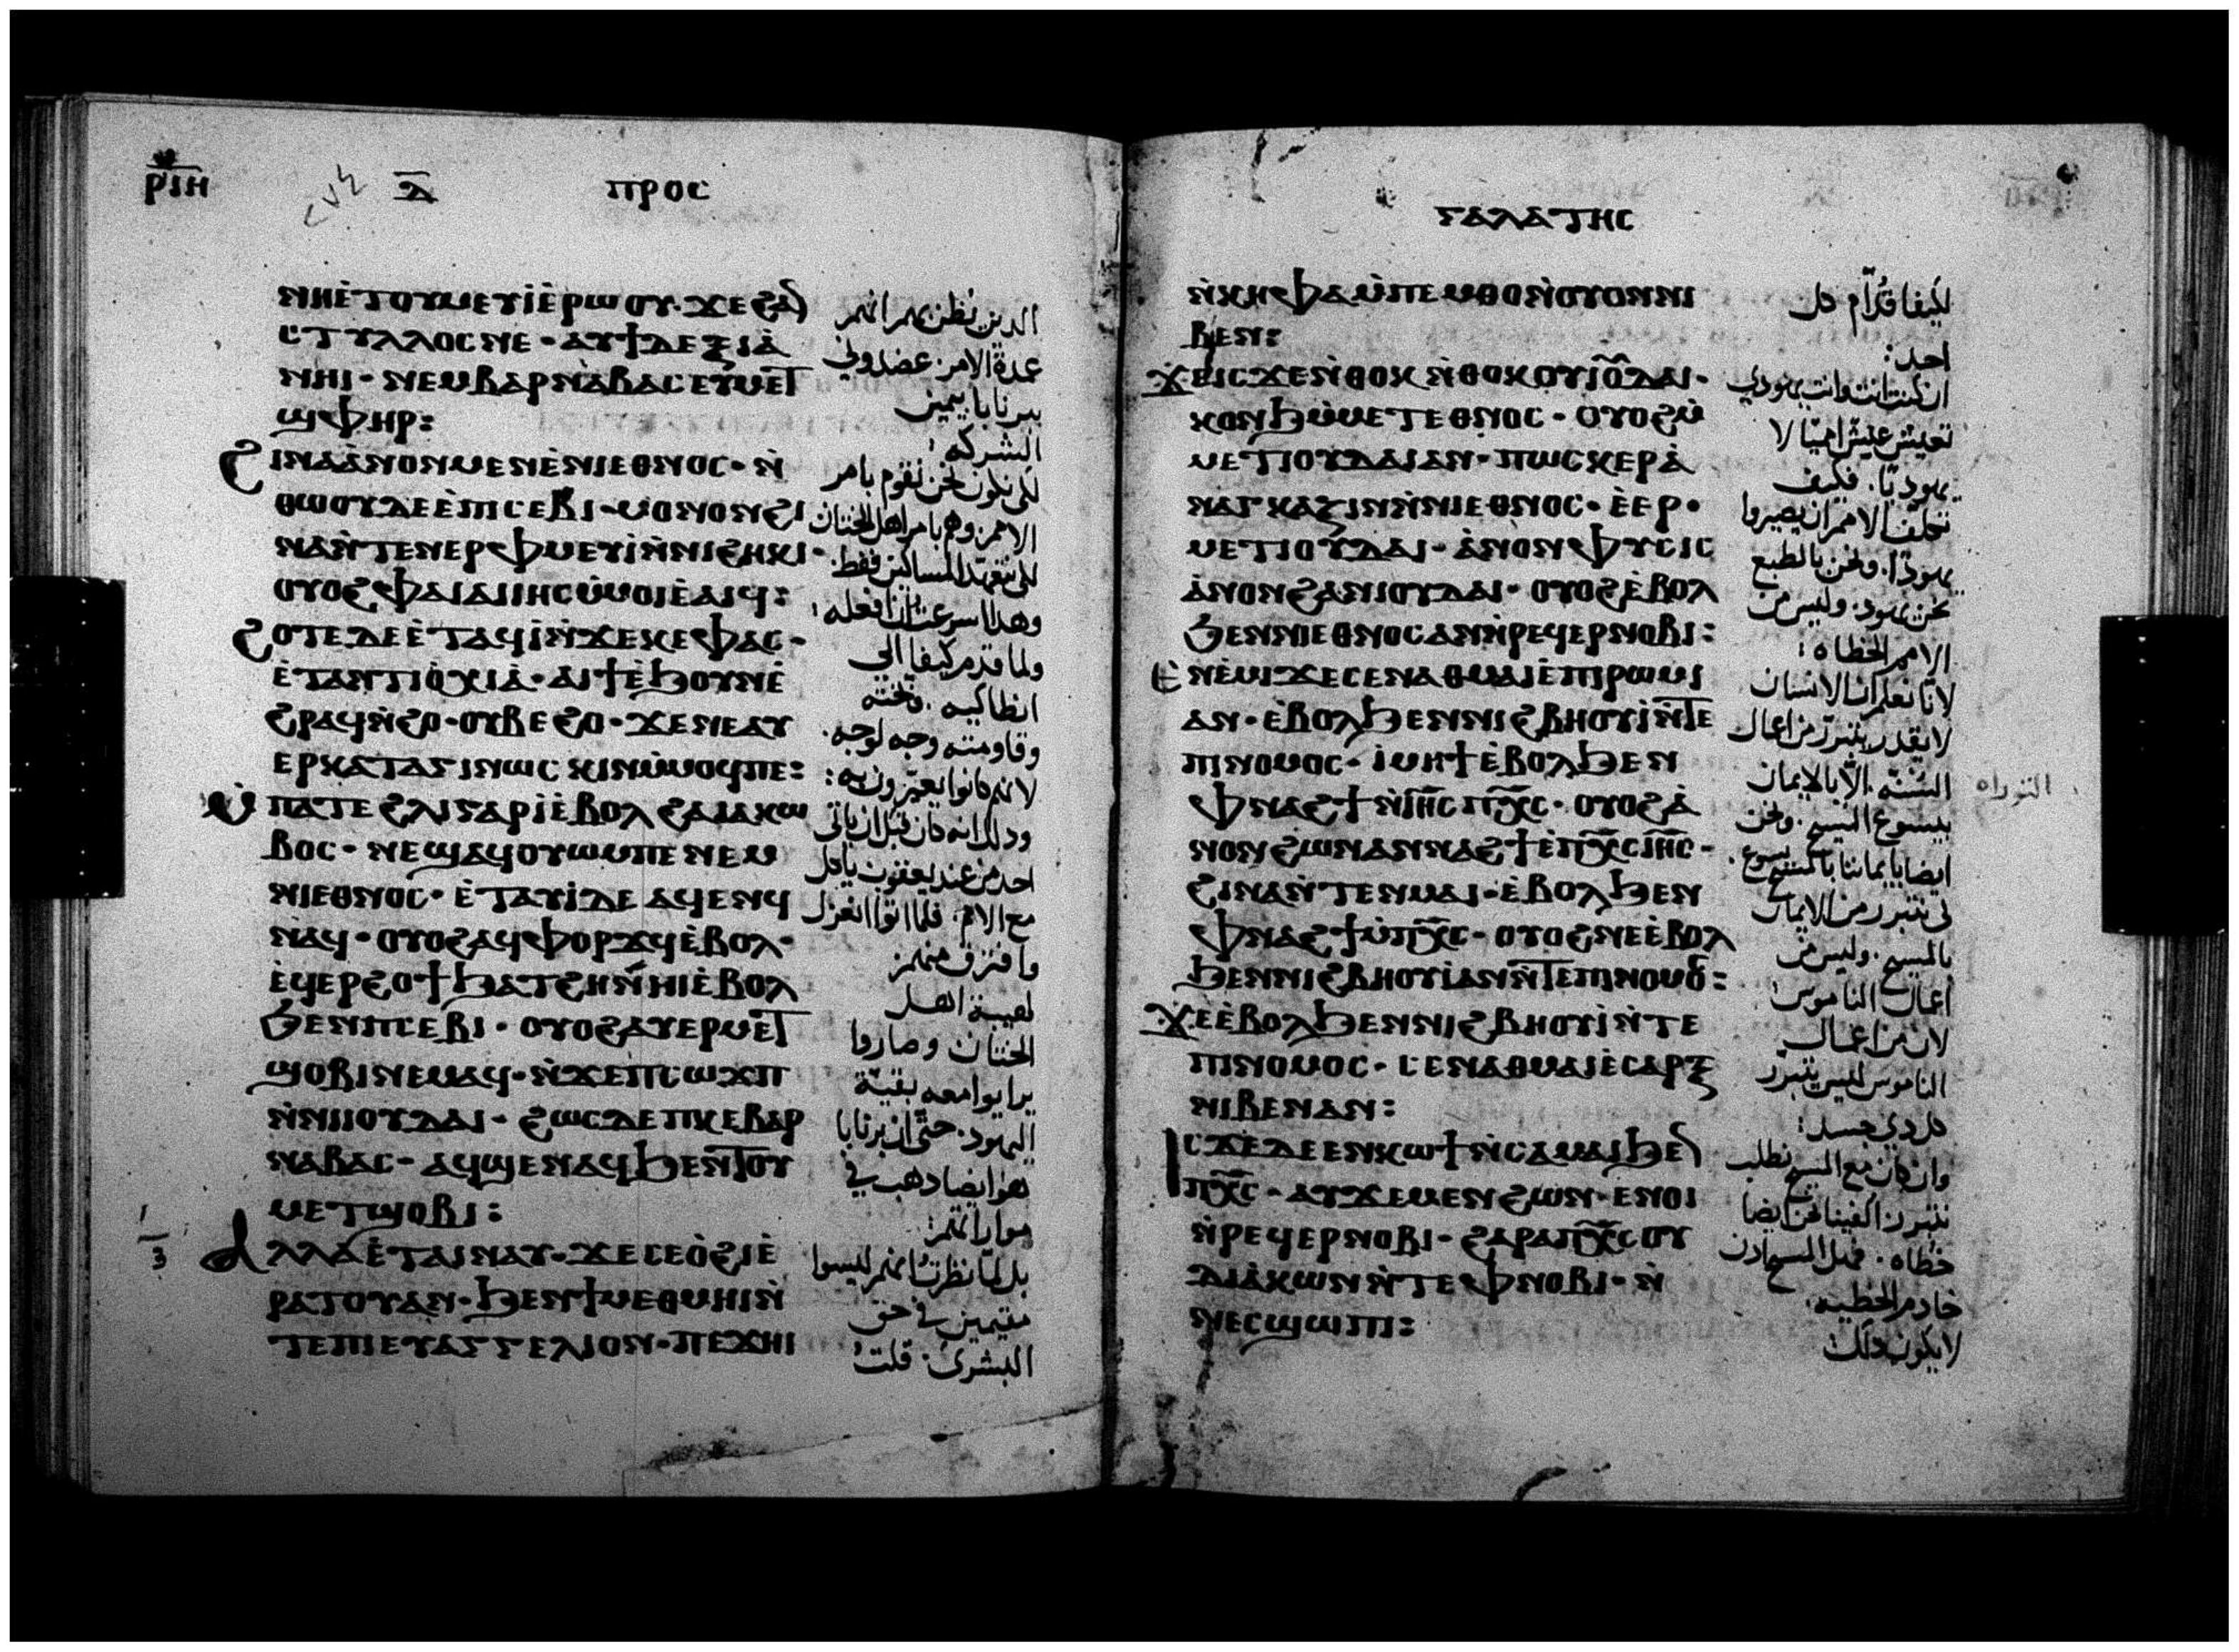 ⲣⲓⲏ
ⲇ
ⲡⲣⲟⲥ
ⲛⲏⲉ̀ⲧⲟⲩⲙⲉⲩⲓ̀ⲉ̀ⲣⲱⲟⲩ· ϫⲉϩⲁⲛ
ⲥⲧⲩⲗⲗⲟⲥⲛⲉ· ⲁⲩϯⲇⲉⲝⲓⲁ̀
ⲛⲏⲓ· ⲛⲉⲙⲃⲁⲣⲛⲁⲃⲁⲥ ⲉⲩⲙⲉⲧ
ϣⲫⲏⲣ:
ϩⲓⲛⲁⲁ̀ⲛⲟⲛⲙⲉⲛⲉ̀ⲛⲓⲉⲑⲛⲟⲥ· ⲛ̀
ⲑⲱⲟⲩⲇⲉⲉ̀ⲡⲥⲉⲃⲓ· ⲙⲟⲛⲟⲛϩⲓ
ⲛⲁⲛ̀ⲧⲉⲛⲉⲣⲫⲙⲉⲩⲓ̀ⲛ̀ⲛⲓϩⲏⲕⲓ·
ⲟⲩⲟϩⲫⲁⲓⲁⲓⲓⲏⲥⲙ̀ⲙⲟⲓⲉ̀ⲁⲓϥ:
ϩⲟⲧⲉⲇⲉⲉ̀ⲧⲁϥⲓ̀ⲛ̀ϫⲉⲕⲉⲫⲁⲥ·
ⲉ̀ⲧⲁⲛⲧⲓⲟ̀ⲭⲓⲁ̀· ⲁⲓϯⲉ̀ϧⲟⲩⲛⲉ̀
ϩⲣⲁϥⲛ̀ϩⲟ· ⲟⲩⲃⲉϩⲟ· ϫⲉⲛⲉⲁⲩ
ⲉⲣⲕⲁⲧⲁⲅⲓⲛⲱⲥⲕⲓⲛⲙ̀ⲙⲟϥⲡⲉ:
ⲙ̀ⲡⲁⲧⲉϩⲗⲓⲅⲁⲣⲓ̀ⲉ̀ⲃⲟⲗϩⲁⲓⲁⲕⲱ
ⲃⲟⲥ· ⲛⲉϣⲁϥⲟⲩⲱⲙⲡⲉⲛⲉⲙ
ⲛⲓⲉⲑⲛⲟⲥ· ⲉ̀ⲧⲁⲩⲓ̀ⲇⲉ ⲁϥⲉⲛϥ
ⲛⲁϥ· ⲟⲩⲟϩⲁϥⲫⲟⲣϫϥⲉ̀ⲃⲟⲗ·
ⲉ̀ϥⲉⲣϩⲟϯϧⲁⲧϩⲏⲛ̀ⲛⲏⲓⲉ̀ⲃⲟⲗ
ϧⲉⲛⲡⲥⲉⲃⲓ· ⲟⲩⲟϩⲁⲩⲉⲣⲙⲉⲧ
ϣⲟⲃⲓⲛⲉⲙⲁϥ· ⲛ̀ϫⲉⲡⲥⲱϫⲡ
ⲛ̀ⲛⲓⲓⲟⲩⲇⲁⲓ· ϩⲱⲥⲇⲉⲡⲕⲉⲃⲁⲣ
ⲛⲁⲃⲁⲥ· ⲁϥϣⲉⲛⲁϥϧⲉⲛⲧⲟⲩ
ⲙⲉⲧϣⲟⲃⲓ:
ⲁⲗⲗⲁⲉ̀ⲧⲁⲓⲛⲁⲩ· ϫⲉⲥⲉⲟ̀ϩⲓⲉ̀
ⲣⲁⲧⲟⲩⲁⲛ· ϧⲉⲛϯⲙⲉⲑⲙⲏⲓⲛ̀
ⲧⲉⲡⲓⲉⲩⲁⲅⲅⲉⲗⲓⲟⲛ· ⲡⲉϫⲏⲓ
الذين نظن بهم انهم
عمدة الامر· عضدوني
ببرنابا بيمين
الشركه:
لكي نكون نحن نقوم بامر
الامم وهم بامر اهل الختان
لكي نتعهد المساكين فقط·
وهذا اسرعت انا فعله:
ولما قدم كيفا الي
انطاكيه· وبخته
وقاومته وجه لوجه·
لانهم كانوا يعيّرون به:
وذلك انه كان قبل ان ياتي
احد من عند يعقوب ياكل
مع الامم· فلما اتوا انعزل
وافترق منهم
لهيبة اهل
الختان وصاروا
يرايوا معه بقيّة
اليهود· حتّى ان برنابا
هوايضا دهب في
موارا تهم:
بل لمّا نظرتُ انهم ليسوا
مقيمين في حق
البشرى· قلت
ⲅⲁⲗⲁⲧⲏⲥ
ⲛ̀ⲕⲏⲫⲁⲙ̀ⲡⲉⲙⲑⲟⲛ̀ⲟⲩⲟⲛⲛⲓ
ⲃⲉⲛ:
ϫⲉⲓⲥϫⲉⲛ̀ⲑⲟⲕ ⲛ̀ⲑⲟⲕⲟⲩⲓⲟⲩⲇⲁⲓ·
ⲕⲟⲛϧⲙ̀ⲙⲉⲧⲉⲑⲛⲟⲥ· ⲟⲩⲟϩⲙ̀
ⲙⲉⲧⲓⲟⲩⲇⲁⲓⲁⲛ· ⲡⲱⲥⲕⲉⲣⲁ̀
ⲛⲁⲅⲕⲁⲍⲓⲛⲛ̀ⲛⲓⲉⲑⲛⲟⲥ· ⲉ̀ⲉⲣ·
ⲙⲉⲧⲓⲟⲩⲇⲁⲓ· ⲁ̀ⲛⲟⲛⲫⲩⲥⲓⲥ
ⲁ̀ⲛⲟⲛϩⲁⲛⲓⲟⲩⲇⲁⲓ· ⲟⲩⲟϩⲉ̀ⲃⲟⲗ
ϧⲉⲛⲛⲓⲉⲑⲛⲟⲥⲁⲛⲛ̀ⲣⲉϥⲉⲣⲛⲟⲃⲓ:
ⲉ̀ⲛⲉ̀ⲙⲓϫⲉⲥⲉⲛⲁⲑⲙⲁⲓⲉ̀ⲡⲓⲣⲱⲙⲓ
ⲁⲛ· ⲉ̀ⲃⲟⲗϧⲉⲛⲛⲓϩⲃⲏⲟⲩⲓ̀ⲛ̀ⲧⲉ
ⲡⲓⲛⲟⲙⲟⲥ· ⲓ̀ⲙⲏϯⲉ̀ⲃⲟⲗϧⲉⲛ
ⲫⲛⲁϩϯⲛ̀ⲓⲏⲥ ⲡⲭⲥ· ⲟⲩⲟϩⲁ̀
ⲛⲟⲛϩⲱⲛⲁⲛⲛⲁϩϯⲉ̀ⲡⲭⲥⲓⲏⲥ·
ϩⲓⲛⲁⲛ̀ⲧⲉⲛⲙⲁⲓ· ⲉ̀ⲃⲟⲗϧⲉⲛ
ⲫⲛⲁϩϯⲙ̀ⲡⲭⲥ· ⲟⲩⲟϩⲛⲉⲉ̀ⲃⲟⲗ
ϧⲉⲛⲛⲓϩⲃⲏⲟⲩⲓ̀ⲁⲛⲛ̀ⲧⲉⲡⲓⲛⲟⲙⲟⲥ:
ϫⲉⲉ̀ⲃⲟⲗϧⲉⲛⲛⲓϩⲃⲏⲟⲩⲓ̀ⲛ̀ⲧⲉ
ⲡⲓⲛⲟⲙⲟⲥ· ⲥⲉⲛⲁⲑⲙⲁⲓⲉ̀ⲥⲁⲣⲝ
ⲛⲓⲃⲉⲛⲁⲛ:
ⲓⲥϫⲉⲇⲉⲉⲛⲕⲱϯⲛ̀ⲥⲁⲙⲁⲓϧⲉⲛ
ⲡⲭⲥ· ⲁⲩϫⲉⲙⲉⲛϩⲱⲛ· ⲉⲛⲟⲓ
ⲛ̀ⲣⲉϥⲉⲣⲛⲟⲃⲓ· ϩⲁⲣⲁⲡⲭⲥⲟⲩ
ⲇⲓⲁ̀ⲕⲱⲛⲛ̀ⲧⲉⲫⲛⲟⲃⲓ· ⲛ̀
ⲛⲉⲥϣⲱⲡⲓ:
لكيفا قدّام كل
احد:
ان كنت انت وانت يهودي
تعيش عيشًا امميّا لا
يهوديّا· فكيف
تكلف الامم ان يصيروا
يهودًا· ونحن بالطبع
نحن يهود· وليس من
الامم الخطاه:
لانا نعلم ان الانسان
لا يقدر يتبرر من اعمال
السُنّه· الّا بالايمان
بيسوع المسيح· ونحن
ايضا بايماننا بالمسيح يسوع·
لكي نتبرر من الايمان
بالمسيح· وليس من
اعمال الناموس:
لان من اعمال
الناموس ليس يتبرر
كل ذي جسد:
وان كان مع المسيح نطلب
نتبرر· الفينا نحن ايضا
خطاه· فهل المسيح اذن
خادم الخطيه·
لا يكون ذلك:
التوراه